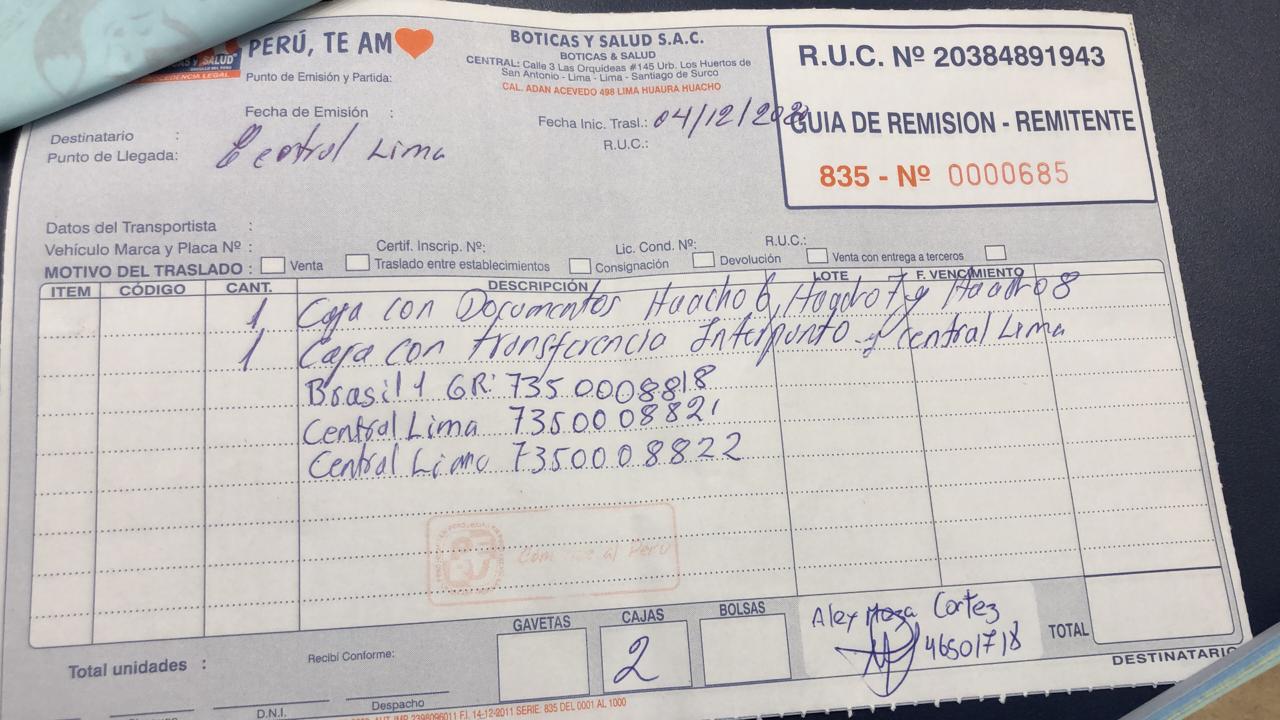 PERÚ, TE AM
Y SALUD
PROCEDENCIA LEGAL
Punto de Emisión y Partida:
BOTICAS Y SALUD S.A.C.
BOTICAS & SALUD
CENTRAL: Calle 3 Las Orquideas #145 Urb. Los Huertos de
San Antonio - Lima - Lima - Santiago de Surco
CAL. ADAN ACEVEDO 498 LIMA HUAURA HUACHO
R.U.C. Nº 20384891943
GUIA DE REMISION - REMITENTE
835 - Nº 0000685
Fecha de Emisión :
Fecha Inic. Trasl.: 04/12/20
Destinatario :
R.U.C.:
Punto de Llegada: Central Lima
Datos del Transportista :
Vehículo Marca y Placa Nº : Certif. Inscrip. Nº: Lic. Cond. Nº: R.U.C.:
MOTIVO DEL TRASLADO : Venta Traslado entre establecimientos Consignación Devolución Venta con entrega a terceros
ITEM CÓDIGO CANT. DESCRIPCIÓN LOTE F. VENCIMIENTO
1 Caja con Documentos Huacho 6, Huacho 7 y Huacho 8
1 Caja con transferencia Interpunto y Central Lima
Brasil 1 GR: 7350008818
Central Lima 7350008821
Central Lima 7350008822
al Perú
GAVETAS CAJAS BOLSAS
2
Alex Meza Cortez
46501718
TOTAL
Total unidades :
Recibí Conforme:
DESTINATARIO
D.N.I. Despacho
F.I. 14-12-2011 SERIE: 835 DEL 0001 AL 1000